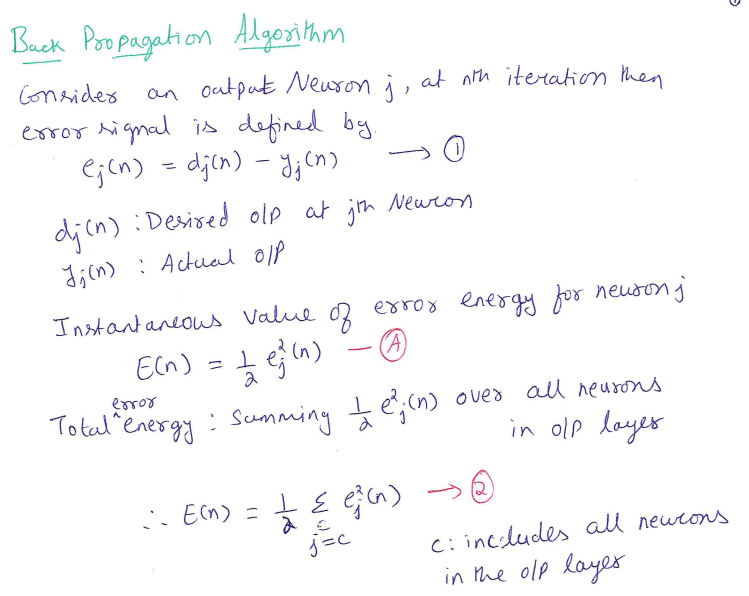 Back Propagation Algorithm
Consider an output Neuron j, at nth iteration then
error signal is defined by.
e_j(n) = d_j(n) - y_j(n) → ①
d_j(n) : Desired o/p at jth Neuron
y_j(n) : Actual o/p
Instantaneous value of error energy for neuron j
E(n) = 1/2 e_j²(n) — Ⓐ
Total ^error energy : Summing 1/2 e²_j(n) over all neurons
in o/p layer
∴ E(n) = 1/2 Σ_{j=c} e_j²(n) → ②
c: includes all neurons
in the o/p layer